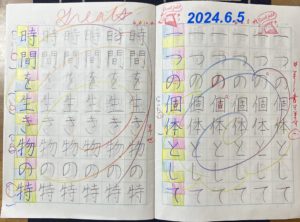 2024.6.5
一つの個体として
一つの個体として
一つの個体として
一つの個体として
一つの個体として
一つの個体として
時間を生き物の特
時間を生き物の特
時間を生き物の特
時間を生き物の特
時間を生き物の特
時間を生き物の特